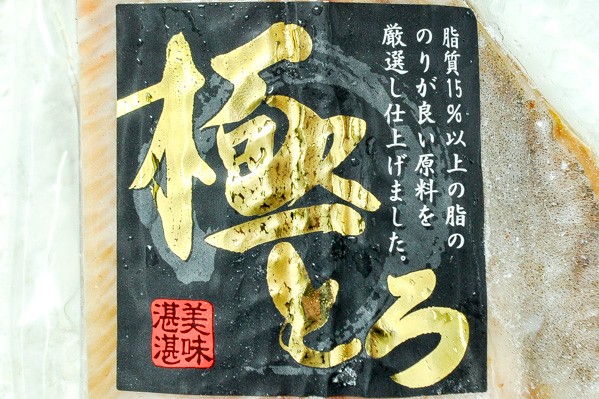 脂質15%以上の脂の
のりが良い原料を
厳選し仕上げました。
極とろ
美味
湛湛